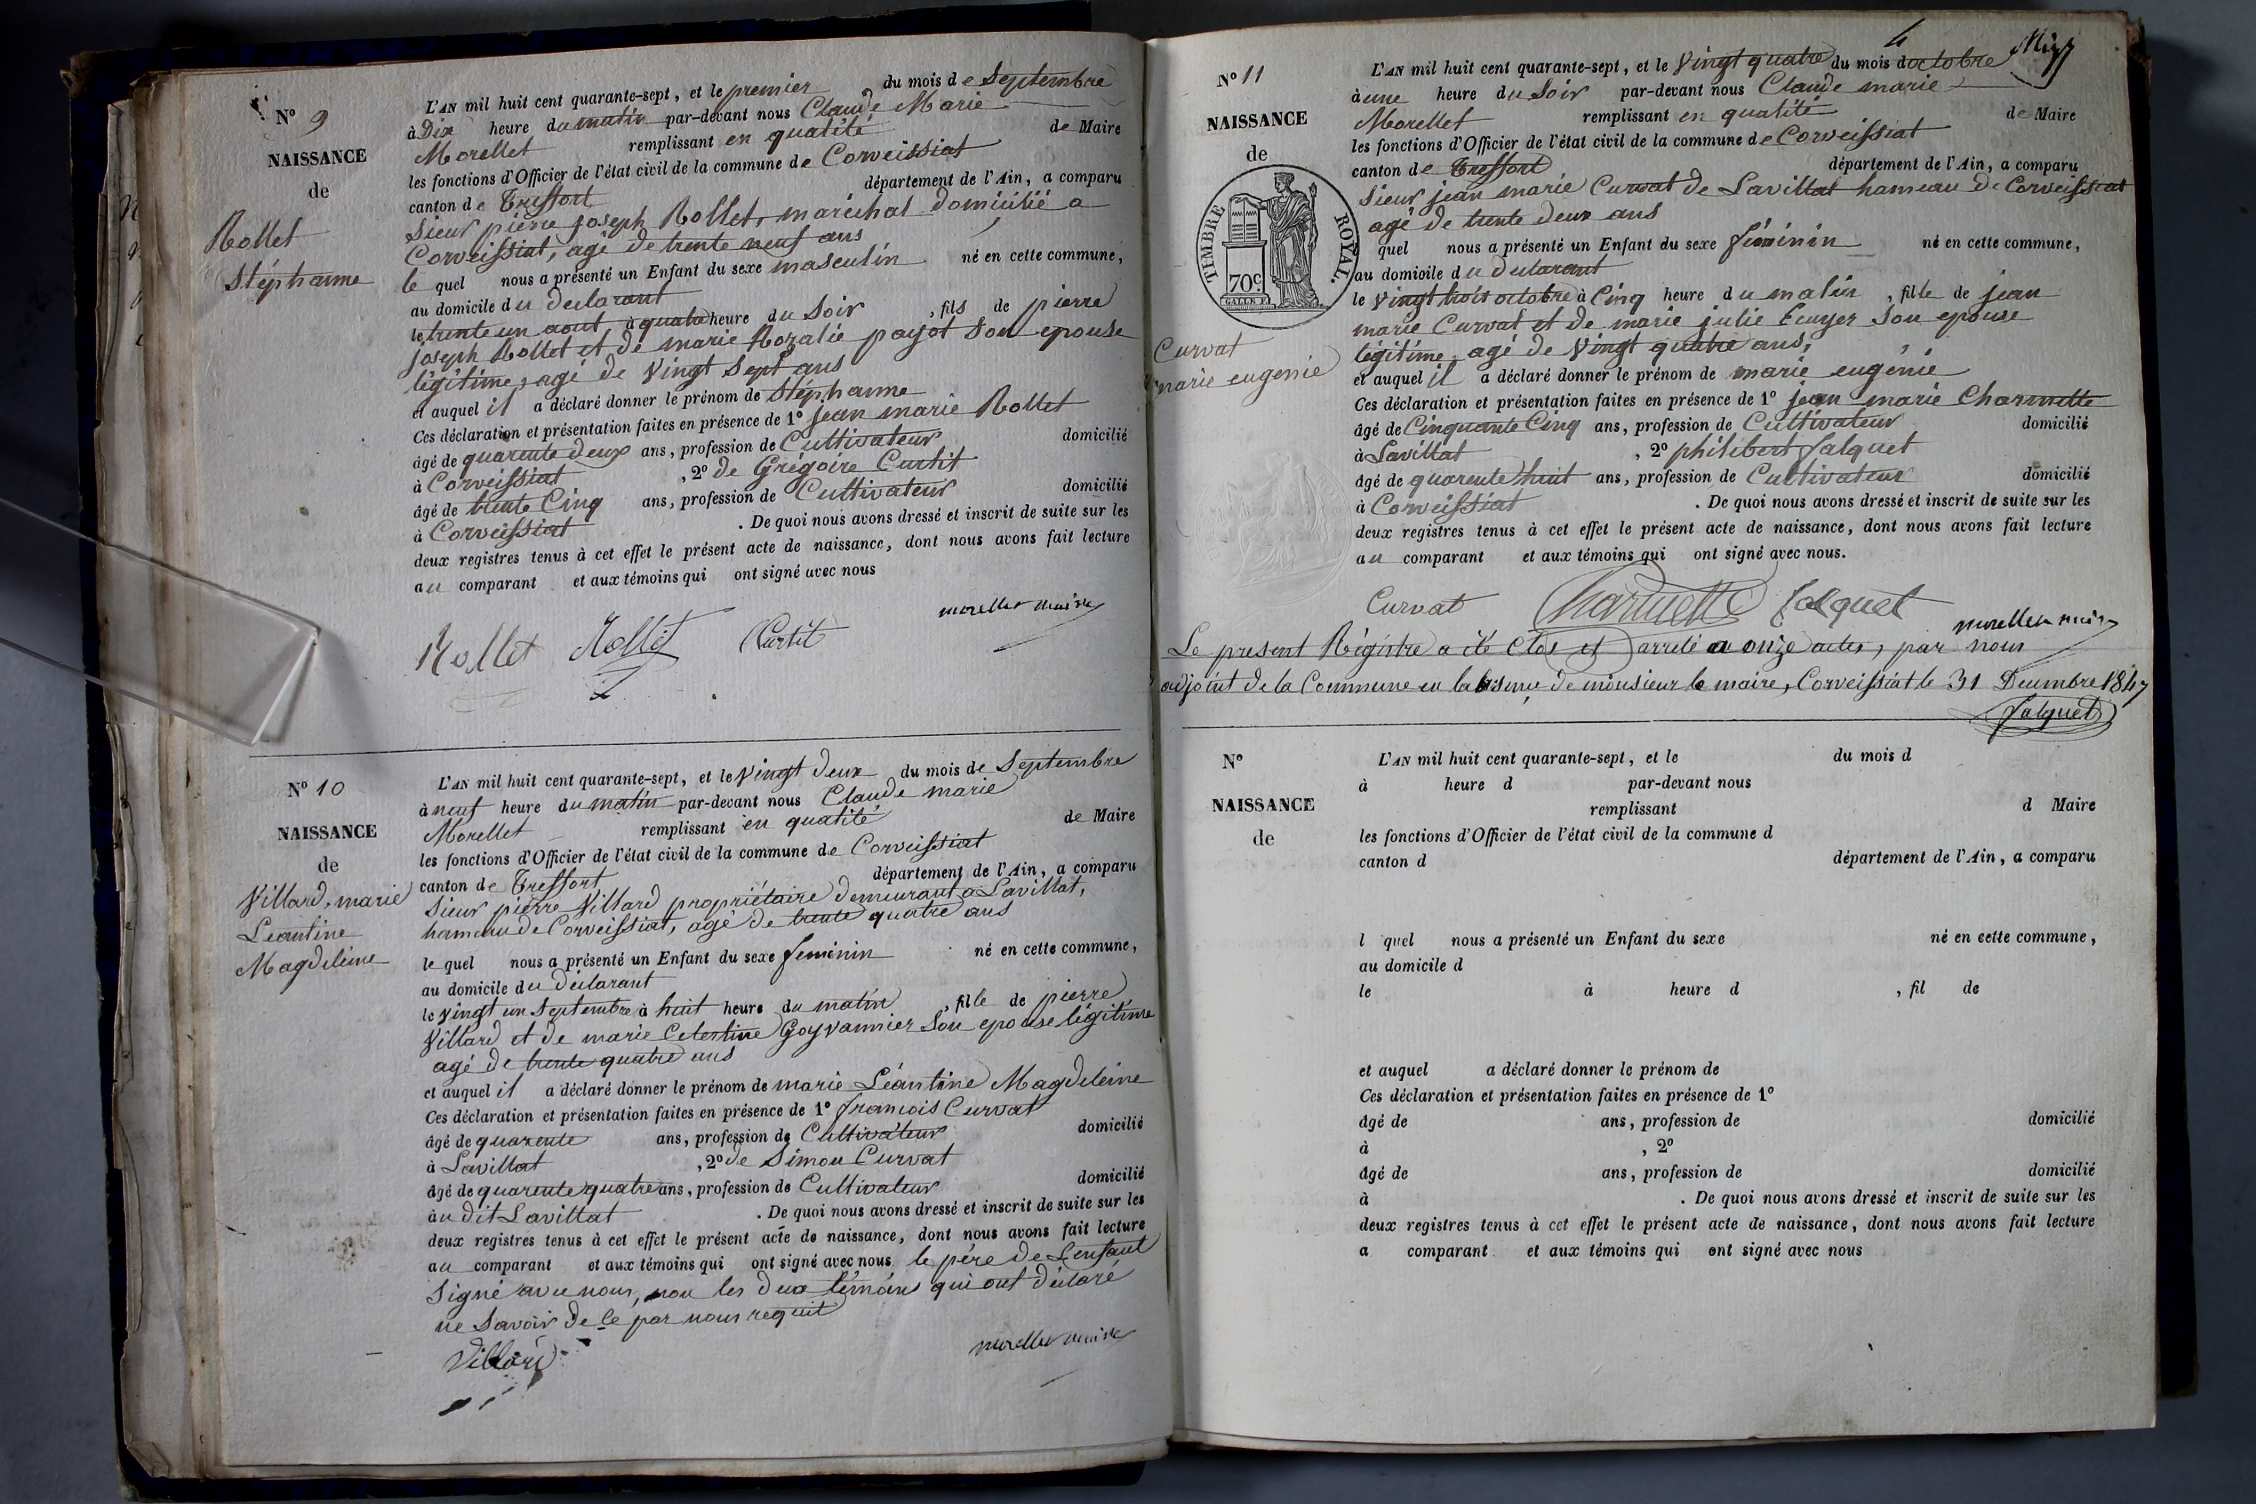 N° 9
NAISSANCE
de
Rollet
Stéphanne
L'AN mil huit cent quarante-sept, et le premier du mois de Septembre
à Dix heure du matin par-devant nous Claude Marie
Morellet remplissant en qualité de Maire
les fonctions d'Officier de l'état civil de la commune de Corveissiat
canton de Treffort département de l'Ain, a comparu
Sieur pierre joseph Rollet, maréchal domicilié a
Corveissiat, agé de trente neuf ans
le quel nous a présenté un Enfant du sexe masculin né en cette commune,
au domicile du declarant
le trente un aout à quatre heure du Soir, fils de pierre
joseph Rollet et de marie Rozalie payot son epouse
légitime, agé de vingt Sept ans
et auquel il a déclaré donner le prénom de Stéphanne
Ces déclaration et présentation faites en présence de 1° jean marie Rollet
âgé de quarente deux ans, profession de Cultivateur domicilié
à Corveissiat, 2° de Grégoire Curtit
âgé de trente Cinq ans, profession de Cultivateur domicilié
à Corveissiat. De quoi nous avons dressé et inscrit de suite sur les
deux registres tenus à cet effet le présent acte de naissance, dont nous avons fait lecture
au comparant et aux témoins qui ont signé avec nous
morellet maire
Rollet Rollet Curtit
N° 10
NAISSANCE
de
Villard, marie
Léantine
Magdeleine
L'AN mil huit cent quarante-sept, et le vingt deux du mois de Septembre
à neuf heure du matin par-devant nous Claude marie
Morellet remplissant en qualité de Maire
les fonctions d'Officier de l'état civil de la commune de Corveissiat
canton de Treffort département de l'Ain, a comparu
Sieur pierre Villard propriétaire demeurant a Lavillat,
hameau de Corveissiat, agé de trente quatre ans
le quel nous a présenté un Enfant du sexe feminin né en cette commune,
au domicile du déclarant
le vingt un Septembre à huit heure du matin, fille de pierre
Villard et de marie Celestine Goyvannier Son epouse légitime
agé de trente quatre ans
et auquel il a déclaré donner le prénom de marie Léantine Magdeleine
Ces déclaration et présentation faites en présence de 1° francois Curvat
âgé de quarente ans, profession de Cultivateur domicilié
à Lavillat, 2° de Simon Curvat
âgé de quarente quatre ans, profession de Cultivateur domicilié
au dit Lavillat. De quoi nous avons dressé et inscrit de suite sur les
deux registres tenus à cet effet le présent acte de naissance, dont nous avons fait lecture
au comparant et aux témoins qui ont signé avec nous le père de L'enfant
Signé avec nous, non les deux témoins qui ont déclaré
ne Savoir de ce par nous requit
Villard morellet maire
4
N° 11
NAISSANCE
de
TIMBRE ROYAL.
70c
Curvat
marie eugenie
L'AN mil huit cent quarante-sept, et le vingt quatre du mois d octobre
à une heure du Soir par-devant nous Claude marie
Morellet remplissant en qualité de Maire
les fonctions d'Officier de l'état civil de la commune de Corveissiat
canton de Treffort département de l'Ain, a comparu
Sieur jean marie Curvat de Lavillat hameau de Corveissiat
agé de trente deux ans
quel nous a présenté un Enfant du sexe féminin né en cette commune,
au domicile du declarant
le vingt trois octobre à Cinq heure du matin, fille de jean
marie Curvat et de marie julie Ecuyer Son epouse
légitime agé de vingt quatre ans,
et auquel il a déclaré donner le prénom de marie eugénie
Ces déclaration et présentation faites en présence de 1° jean marie Charmette
âgé de Cinquante Cinq ans, profession de Cultivateur domicilié
à Lavillat, 2° philibert falquet
âgé de quarente huit ans, profession de Cultivateur domicilié
à Corveissiat. De quoi nous avons dressé et inscrit de suite sur les
deux registres tenus à cet effet le présent acte de naissance, dont nous avons fait lecture
au comparant et aux témoins qui ont signé avec nous.
Curvat Charmette falquet
morellet maire
Le present Régistre a été Clos et arreté a onze actes, par nous
adjoint de la Commune en labsence de monsieur le maire, Corveissiat le 31 Decembre 1847
falquet
N°
NAISSANCE
de
L'AN mil huit cent quarante-sept, et le du mois d
à heure d par-devant nous
remplissant d Maire
les fonctions d'Officier de l'état civil de la commune d
canton d département de l'Ain, a comparu
l quel nous a présenté un Enfant du sexe né en cette commune,
au domicile d
le à heure d , fil de
et auquel a déclaré donner le prénom de
Ces déclaration et présentation faites en présence de 1°
âgé de ans, profession de domicilié
à , 2°
âgé de ans, profession de domicilié
à . De quoi nous avons dressé et inscrit de suite sur les
deux registres tenus à cet effet le présent acte de naissance, dont nous avons fait lecture
a comparant et aux témoins qui ont signé avec nous